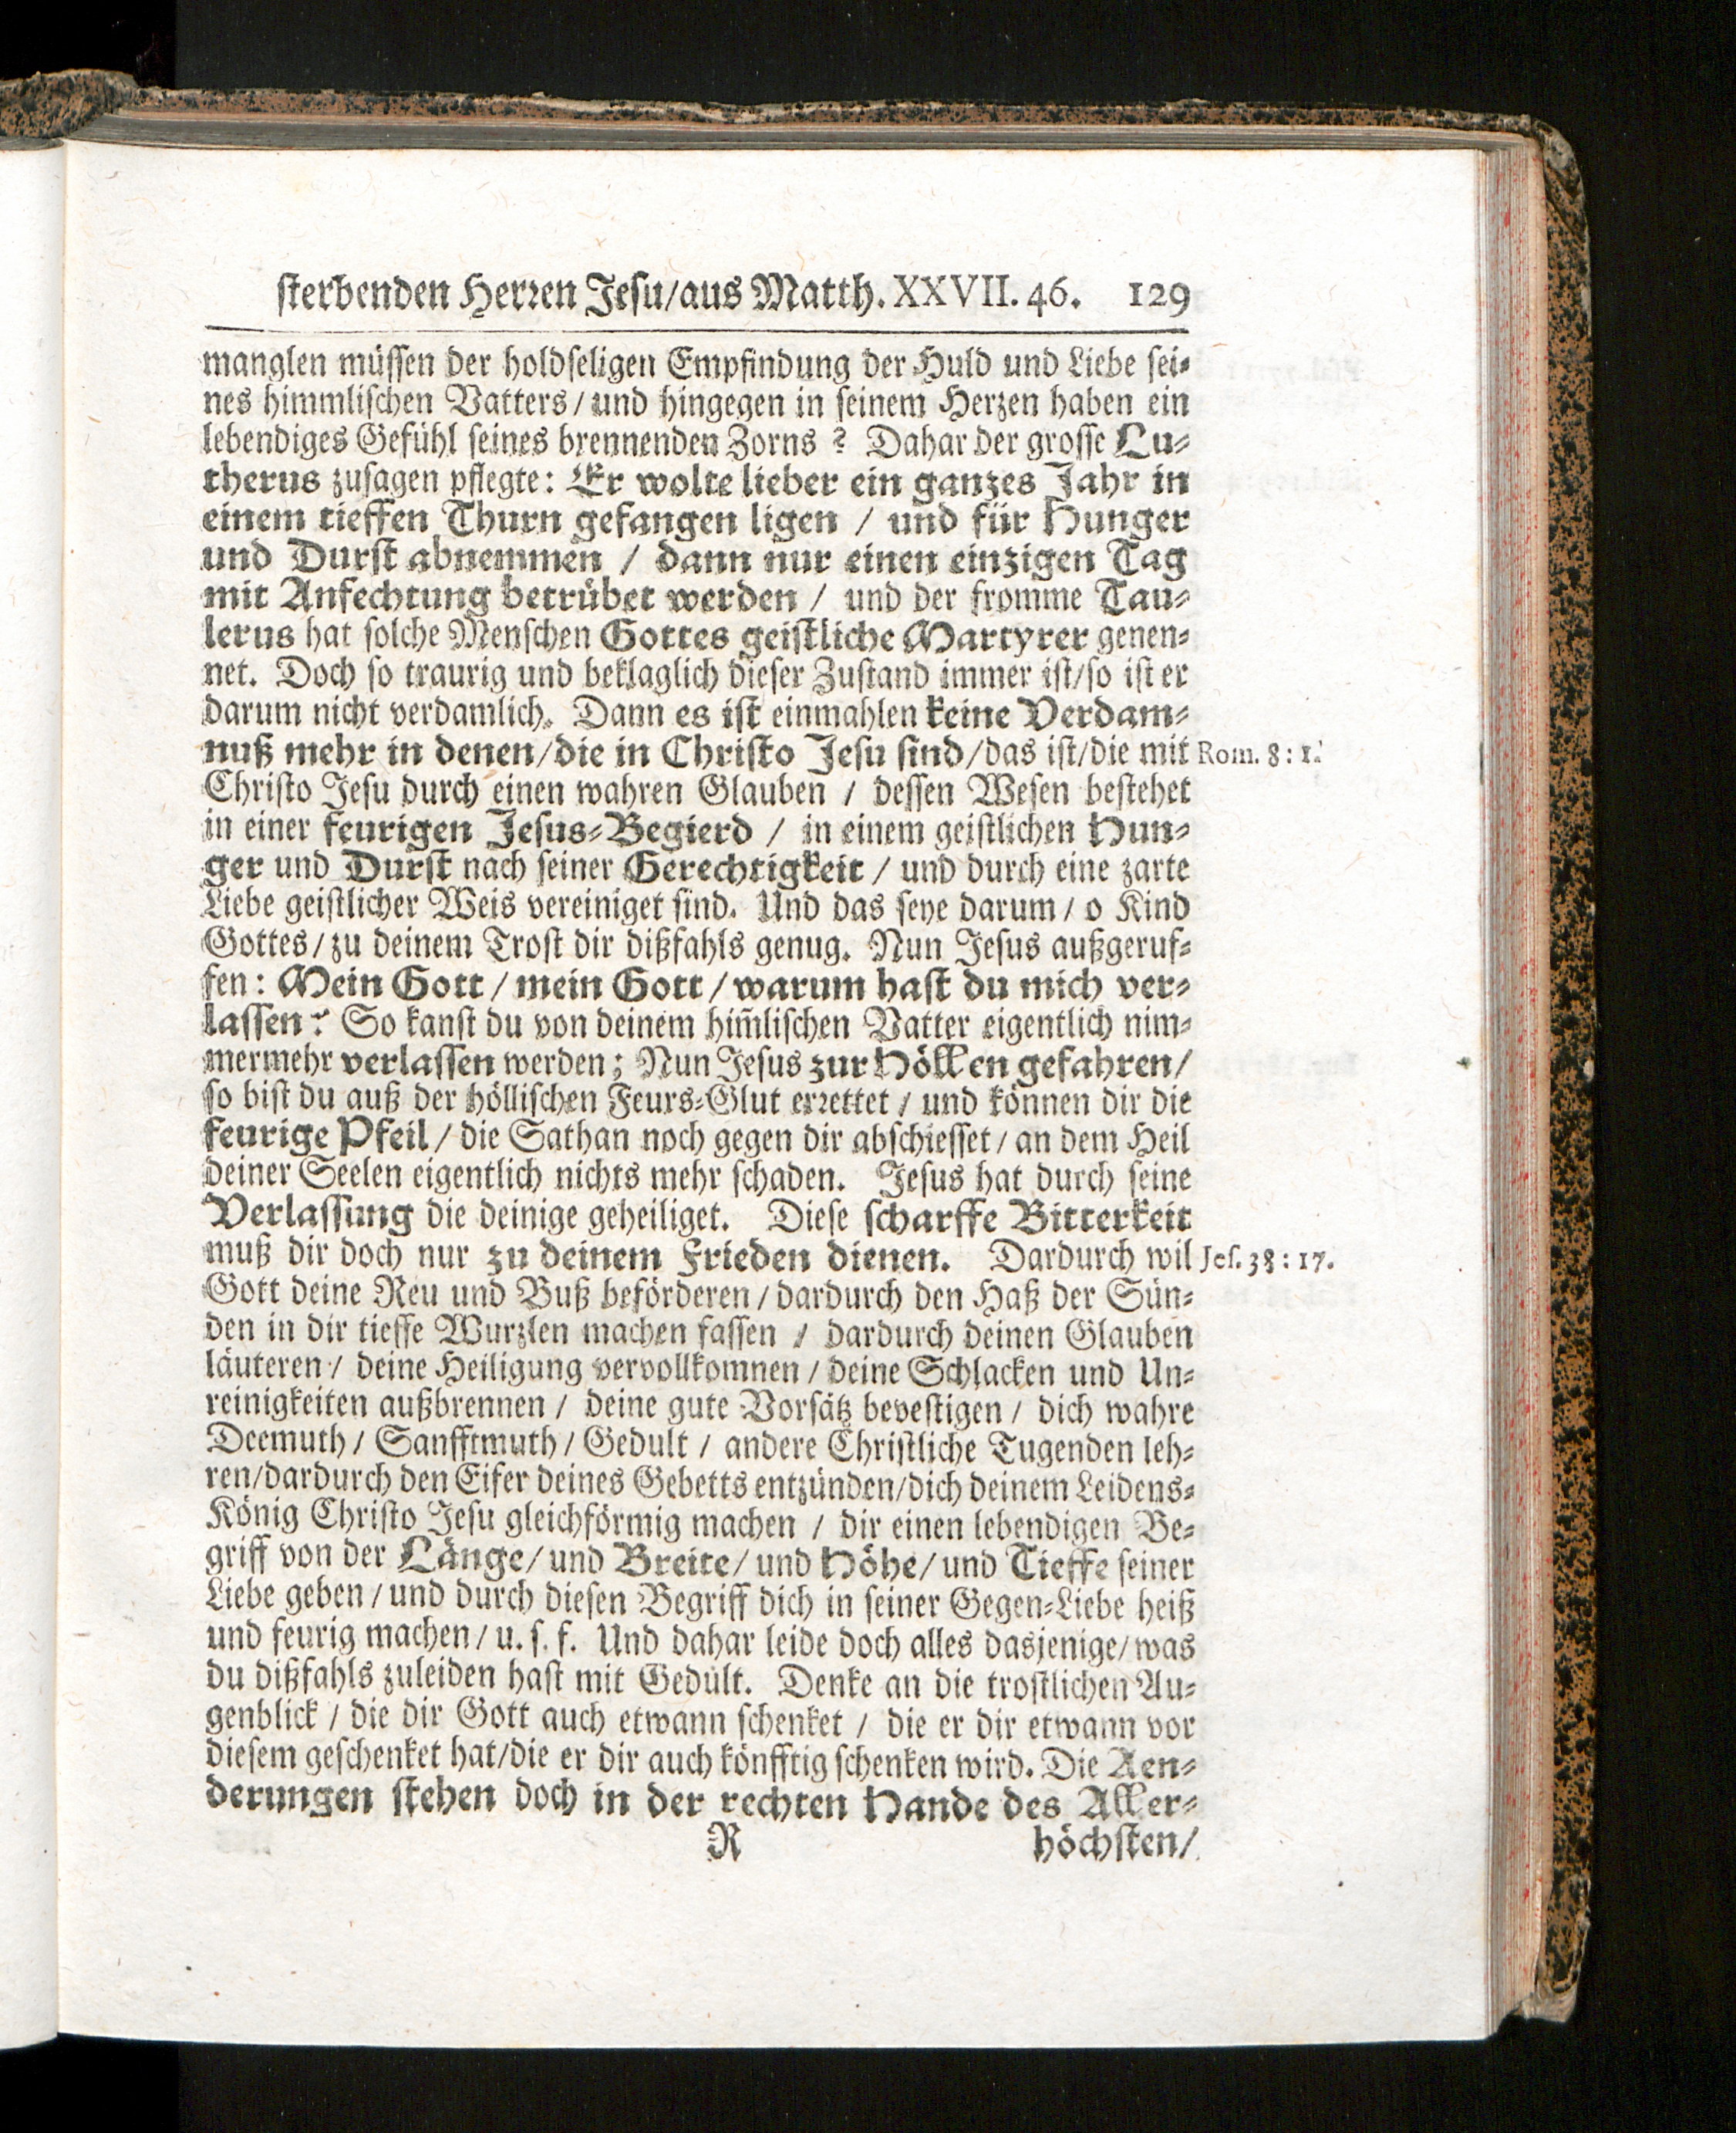 sterbenden Herren Jesu/aus Matth. XXVII. 46. 129
manglen müssen der holdseligen Empfindung der Huld und Liebe sei-
nes himmlischen Vatters / und hingegen in seinem Herzen haben ein
lebendiges Gefühl seines brennenden Zorns? Dahar der grosse Lu-
therus zusagen pflegte: Er wolte lieber ein ganzes Jahr in
einem tieffen Thurn gefangen ligen / und für Hunger
und Durst abnemmen / dann nur einen einzigen Tag
mit Anfechtung betrübet werden / und der fromme Tau-
lerus hat solche Menschen Gottes geistliche Martyrer genen-
net. Doch so traurig und beklaglich dieser Zustand immer ist/so ist er
darum nicht verdamlich. Dann es ist einmahlen keine Verdam-
nuß mehr in denen/die in Christo Jesu sind/das ist/die mit Rom. 8: 1.
Christo Jesu durch einen wahren Glauben / dessen Wesen bestehet
in einer feurigen Jesus-Begierd / in einem geistlichen Hun-
ger und Durst nach seiner Gerechtigkeit / und durch eine zarte
Liebe geistlicher Weis vereiniget sind. Und das seye darum / o Kind
Gottes/zu deinem Trost dir dißfahls genug. Nun Jesus außgeruf-
fen: Mein Gott / mein Gott / warum hast du mich ver-
lassen? So kanst du von deinem him̃lischen Vatter eigentlich nim-
mermehr verlassen werden; Nun Jesus zur Höllen gefahren/
so bist du auß der höllischen Feurs-Glut errettet / und können dir die
feurige Pfeil / die Sathan noch gegen dir abschiesset / an dem Heil
deiner Seelen eigentlich nichts mehr schaden. Jesus hat durch seine
Verlassung die deinige geheiliget. Diese scharffe Bitterkeit
muß dir doch nur zu deinem Frieden dienen. Dardurch wil Jes. 38: 17.
Gott deine Reu und Buß beförderen / dardurch den Haß der Sün-
den in dir tieffe Wurzlen machen fassen / dardurch deinen Glauben
läuteren / deine Heiligung vervollkomnen / deine Schlacken und Un-
reinigkeiten außbrennen / deine gute Vorsätz bevestigen / dich wahre
Deemuth / Sanfftmuth / Gedult / andere Christliche Tugenden leh-
ren/dardurch den Eifer deines Gebetts entzünden/dich deinem Leidens-
König Christo Jesu gleichförmig machen / dir einen lebendigen Be-
griff von der Länge/ und Breite/ und Höhe/ und Tieffe seiner
Liebe geben / und durch diesen Begriff dich in seiner Gegen-Liebe heiß
und feurig machen / u. s. f. Und dahar leide doch alles dasjenige/ was
du dißfahls zuleiden hast mit Gedult. Denke an die trostlichen Au-
genblick / die dir Gott auch etwann schenket / die er dir etwann vor
diesem geschenket hat/die er dir auch könfftig schenken wird. Die Aen-
derungen stehen doch in der rechten Hande des Aller-
R höchsten/